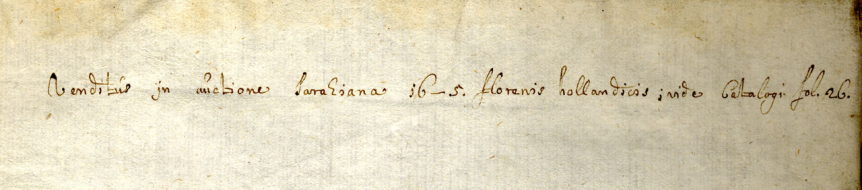 Venditus in auctione Saraziana 16–5. florenis hollandicis; vide Catalogi fol. 26.